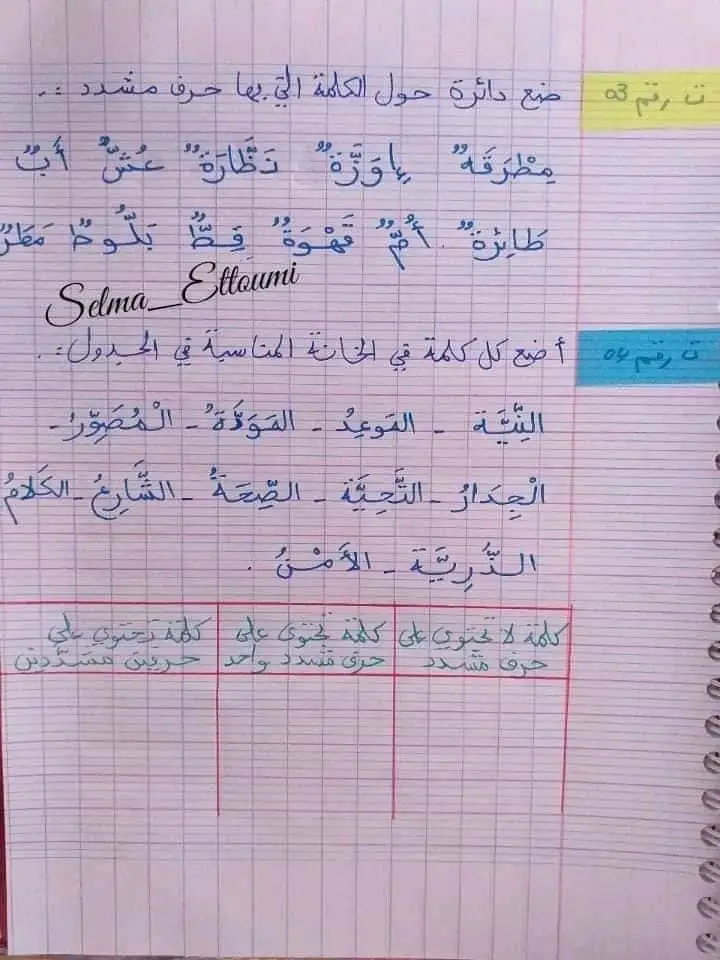 ت رقم 03
ضع دائرة حول الكلمة التي بها حرف مشدد :.
مِطْرَقَةٌ إِوَزَّةٌ نَظَّارَةٌ عُشٌّ أَبٌ
طَائِرَةٌ . أُمٌّ قَهْوَةٌ قِطٌّ بَلُّوطٌ مَطَرٌ
Selma_Ettoumi
ت رقم 04
أضع كل كلمة في الخانة المناسبة في الجدول :.
النِّيَّة - المَوعِدُ - المَوَدَّةُ - الْمُصَوِّرُ -
الْجِدَارُ - التَّحِيَّة - الصِّحَةُ - الشَّارِعُ - الكَلامُ
الذُّرِيَّة - الأَمْنُ .
كلمة لا تحتوي على حرف مشدد
كلمة تحتوي على حرف مشدد واحد
كلمة تحتوي على حرفين مشددين